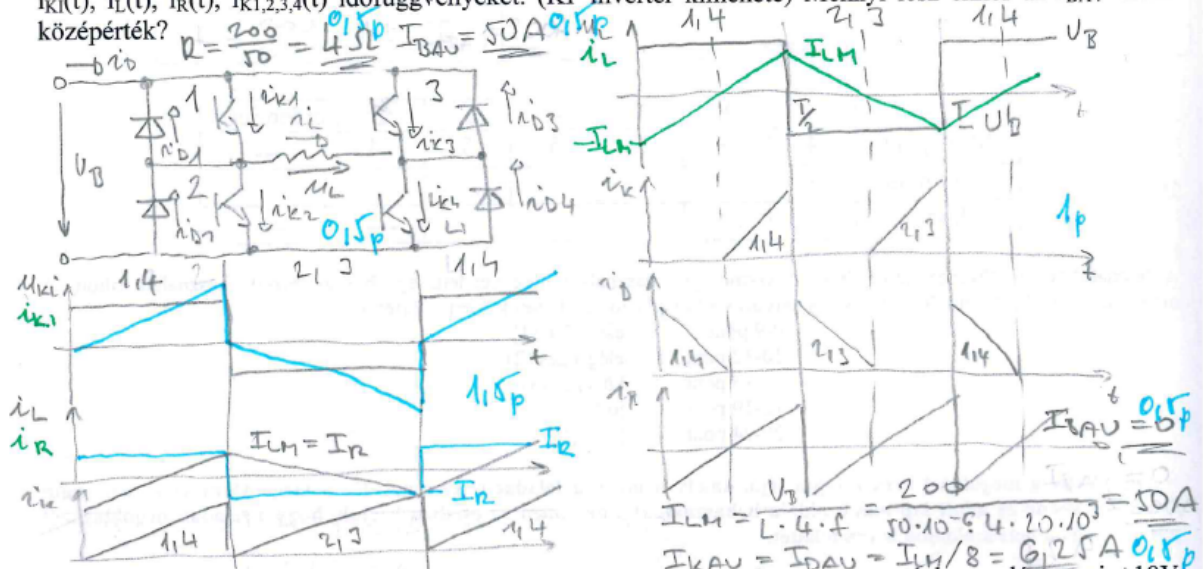 i_KI(t), i_L(t), i_R(t), i_K1,2,3,4(t) időfüggvényeket. (KI inverter kimenete)
középérték?
R = 200/50 = 4Ω 0,5p I_BAV = 50A 0,5p
i_D
1 i_K1 i_L 3 i_D3
i_D1 i_K3
U_B u_L
2 i_K2 i_K4 i_D4
0,5p
1,4 2,3 1,4
u_Ki
i_K1
t
1,5p
i_L
i_R I_LM = I_R I_R
I_R
i_K 1,4 2,3 1,4
1,4 2,3 1,4 U_B
i_L I_LM
T/2 T t
-I_LM -U_B
i_K
1,4 2,3 1p
t
i_D
1,4 2,3 1,4
t
i_R
I_BAV = 0 0,5p
I_LM = U_B/(L·4·f) = 200/(50·10^-6·4·20·10^3) = 50A
I_KAV = I_DAV = I_LM/8 = 6,25A 0,5p